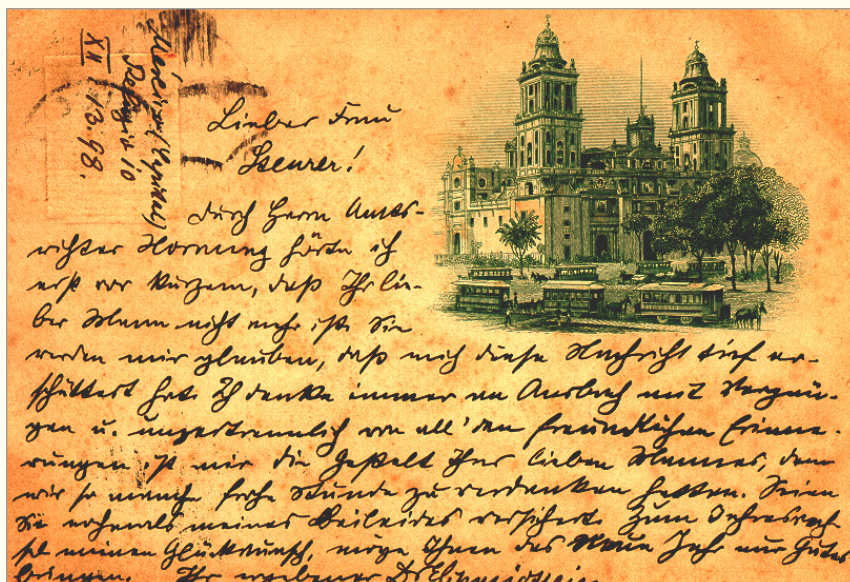 Mexico (Capital)
Refugio 10
XII 13.98.
Liebe Frau
Steurer!
Durch Herrn Amts-
richter Hornung hörte ich
erst vor Kurzem, daß Ihr lie-
ber Mann nicht mehr ist. Sie
werden mir glauben, daß mich diese Nachricht tief er-
schüttert hat. Ich denke immer an Ansbach mit Vergnü-
gen u. unzertrennlich von all' den freundlichen Erinne-
rungen ist mir die Gestalt Ihres lieben Mannes, dem
wir so manche frohe Stunde zu verdanken hatten. Seien
Sie nochmals meines Beileides versichert. Zum Jahreswech-
sel meinen Glückwunsch, möge Ihnen das Neue Jahr nur Gutes
bringen. Ihr ergebener